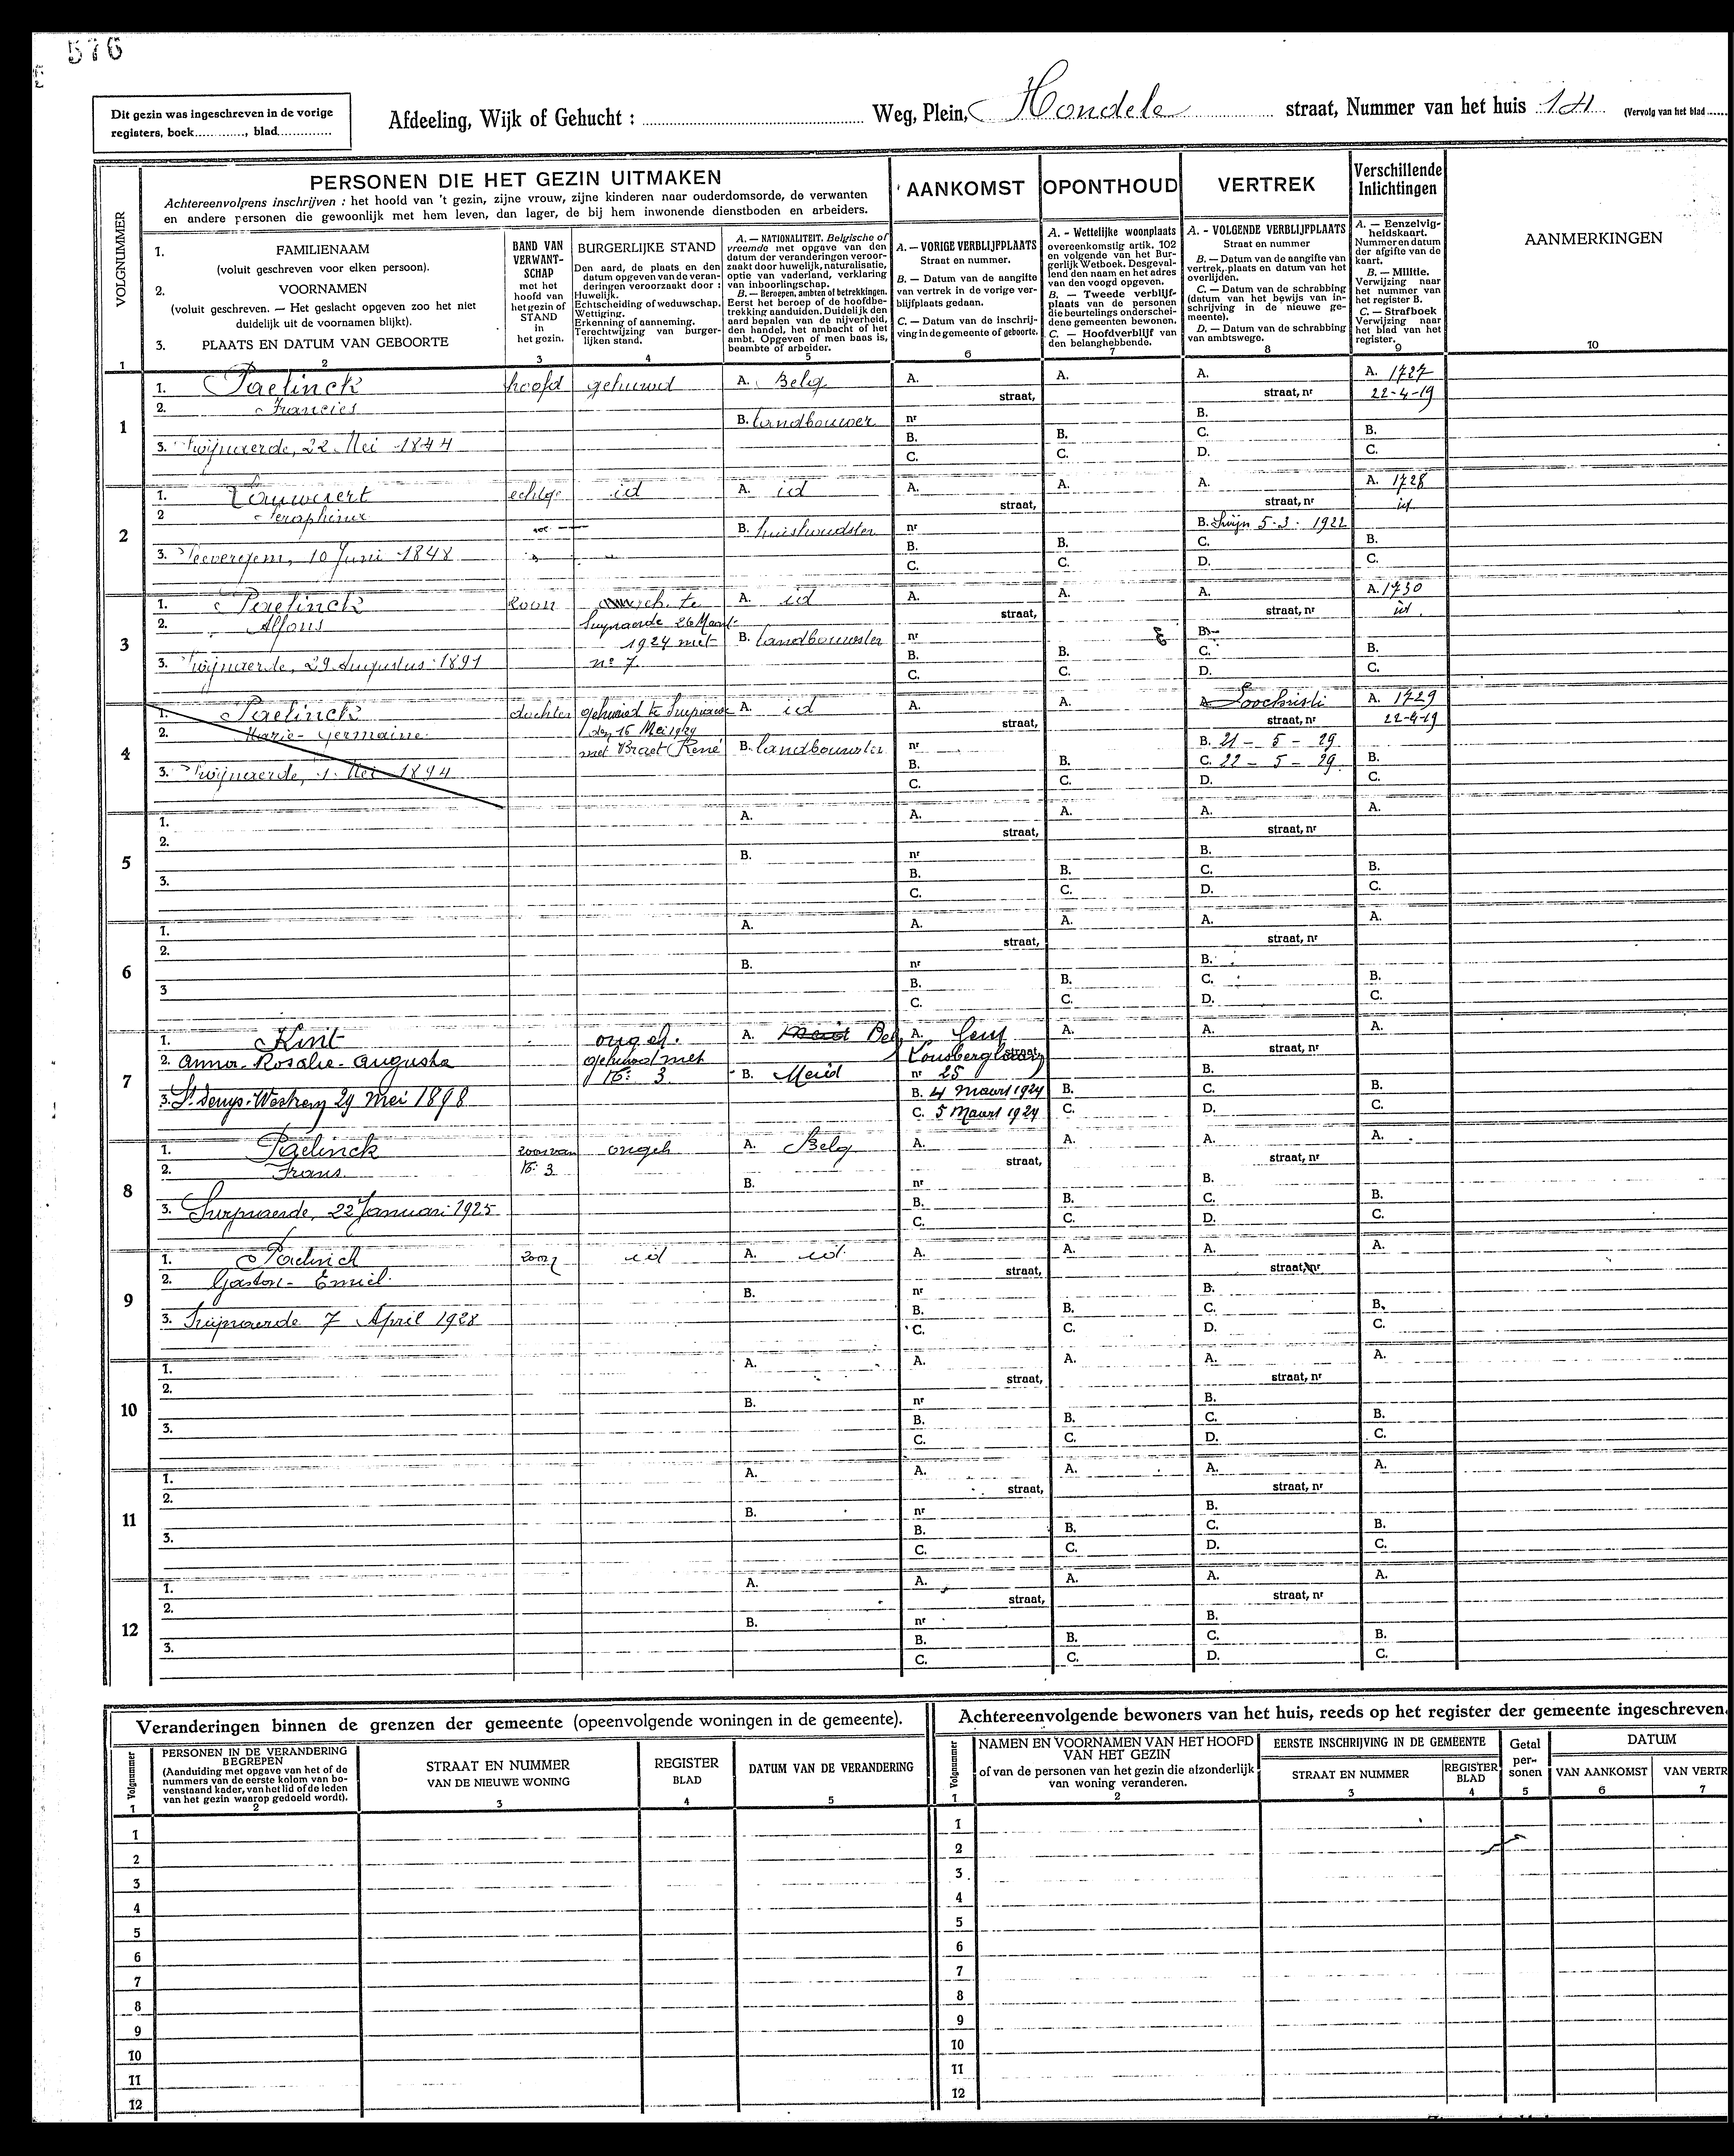 576
Dit gezin was ingeschreven in de vorige
registers, boek............, blad..............
Afdeeling, Wijk of Gehucht :
Weg, Plein, Hondele straat, Nummer van het huis 14 (Vervolg van het blad
VOLGNUMMER
PERSONEN DIE HET GEZIN UITMAKEN
Achtereenvolgens inschrijven : het hoofd van 't gezin, zijne vrouw, zijne kinderen naar ouderdomsorde, de verwanten
en andere personen die gewoonlijk met hem leven, dan lager, de bij hem inwonende dienstboden en arbeiders.
AANKOMST
OPONTHOUD
VERTREK
Verschillende
Inlichtingen
AANMERKINGEN
1. FAMILIENAAM
(voluit geschreven voor elken persoon).
2. VOORNAMEN
(voluit geschreven. — Het geslacht opgeven zoo het niet
duidelijk uit de voornamen blijkt).
3. PLAATS EN DATUM VAN GEBOORTE
BAND VAN
VERWANT-
SCHAP
met het
hoofd van
het gezin of
STAND
in
het gezin.
BURGERLIJKE STAND
Den aard, de plaats en den
datum opgeven van de veran-
deringen veroorzaakt door :
Huwelijk.
Echtscheiding of weduwschap.
Wettiging.
Erkenning of aanneming.
Terechtwijzing van burger-
lijken stand.
A. — NATIONALITEIT. Belgische of
vreemde met opgave van den
datum der veranderingen veroor-
zaakt door huwelijk, naturalisatie,
optie van vaderland, verklaring
van inboorlingschap.
B. — Beroepen, ambten of betrekkingen.
Eerst het beroep of de hoofdbe-
trekking aanduiden. Duidelijk den
aard bepalen van de nijverheid,
den handel, het ambacht of het
ambt. Opgeven of men baas is,
beambte of arbeider.
A. — VORIGE VERBLIJFPLAATS
Straat en nummer.
B. — Datum van de aangifte
van vertrek in de vorige ver-
blijfplaats gedaan.
C. — Datum van de inschrij-
ving in de gemeente of geboorte.
A. - Wettelijke woonplaats
overeenkomstig artik. 102
en volgende van het Bur-
gerlijk Wetboek. Desgeval-
lend den naam en het adres
van den voogd opgeven.
B. — Tweede verblijf-
plaats van de personen
die beurtelings onderschei-
dene gemeenten bewonen.
C. — Hoofdverblijf van
den belanghebbende.
A. - VOLGENDE VERBLIJFPLAATS
Straat en nummer
B. — Datum van de aangifte van
vertrek, plaats en datum van het
overlijden.
C. — Datum van de schrabbing
(datum van het bewijs van in-
schrijving in de nieuwe ge-
meente).
D. — Datum van de schrabbing
van ambtswege.
A. — Eenzelvig-
heidskaart.
Nummer en datum
der afgifte van de
kaart.
B. — Militie.
Verwijzing naar
het nummer van
het register B.
C. — Strafboek
Verwijzing naar
het blad van het
register.
1 2 3 4 5 6 7 8 9 10
1
1. Paelinck hoofd gehuwd A. Belg A. A. A. A. 1727
2. Francies straat, straat, nr 22-4-19
B. landbouwer nr B.
3. Swijnaerde, 22 Mei 1844 B. B. C. B.
C. C. D. C.
2
1. Lauwaert echtge id A. id A. A. A. A. 1728
2 Seraphine straat, straat, nr id
B. huishoudster nr B. Swijn 5-3-1922
3. Seevergem, 10 Juni 1848 B. B. C. B.
C. C. D. C.
3
1. Paelinck zoon A. id A. A. A. A. 1730
2. Alfons Swynaerde 26 Maart straat, straat, nr id.
1924 met B. landbouwster nr B.
3. Swijnaerde, 29 Augustus 1891 n° 7 B. B. C. B.
C. C. D. C.
4
1. Paelinck dochter gehuwd te Swynaerde A. id A. A. A. Loochristi A. 1729
2. Marie-Germaine den 15 Mei 1929 straat, straat, nr 22-4-19
met Braet René B. landbouwster nr B. 21 - 5 - 29
3. Swijnaerde, 1 Mei 1894 B. B. C. 22 - 5 - 29. B.
C. C. D. C.
5
1. A. A. A. A. A.
2. straat, straat, nr
B. nr B.
3. B. B. C. B.
C. C. D. C.
6
1. A. A. A. A. A.
2. straat, straat, nr
B. nr B.
3 B. B. C. B.
C. C. D. C.
7
1. Kint ongeh. A. Meid Belg A. Gent A. A. A.
2. Anna-Rosalie-Augusta gehuwd met Lousberglaan straat, straat, nr
N: 3 B. Meid nr 25 B.
3. St Denys-Westrem 29 Mei 1898 B. 4 Maart 1924 B. C. B.
C. 5 Maart 1924 C. D. C.
8
1. Paelinck zoon van ongeh A. Belg A. A. A. A.
2. Frans N: 3 straat, straat, nr
B. nr B.
3. Swynaerde, 22 Januari 1925 B. B. C. B.
C. C. D. C.
9
1. Paelinck zoon id A. id. A. A. A. A.
2. Gaston-Emiel. straat, straat, nr
B. nr B.
3. Swijnaerde 7 April 1928 B. B. C. B.
C. C. D. C.
10
1. A. A. A. A. A.
2. straat, straat, nr
B. nr B.
3. B. B. C. B.
C. C. D. C.
11
1. A. A. A. A. A.
2. straat, straat, nr
B. nr B.
3. B. B. C. B.
C. C. D. C.
12
1. A. A. A. A. A.
2. straat, straat, nr
B. nr B.
3. B. B. C. B.
C. C. D. C.
Veranderingen binnen de grenzen der gemeente (opeenvolgende woningen in de gemeente).
Volgnummer
PERSONEN IN DE VERANDERING
BEGREPEN
(Aanduiding met opgave van het of de
nummers van de eerste kolom van bo-
venstaand kader, van het lid of de leden
van het gezin waarop gedoeld wordt).
STRAAT EN NUMMER
VAN DE NIEUWE WONING
REGISTER
BLAD
DATUM VAN DE VERANDERING
1 2 3 4 5
1
2
3
4
5
6
7
8
9
10
11
12
Achtereenvolgende bewoners van het huis, reeds op het register der gemeente ingeschreven.
Volgnummer
NAMEN EN VOORNAMEN VAN HET HOOFD
VAN HET GEZIN
of van de personen van het gezin die afzonderlijk
van woning veranderen.
EERSTE INSCHRIJVING IN DE GEMEENTE
STRAAT EN NUMMER
REGISTER
BLAD
Getal
per-
sonen
DATUM
VAN AANKOMST
VAN VERTR
1 2 3 4 5 6 7
1
2
3
4
5
6
7
8
9
10
11
12